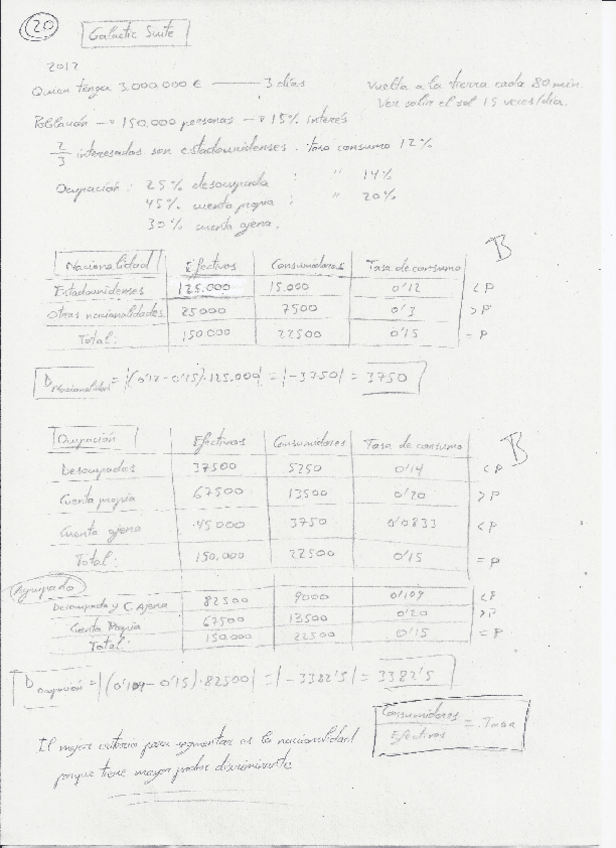 20 Galactic Suite
2012
Quien tenga 3.000.000 € — 3 días
Vuelta a la tierra cada 80 min.
Ver salir el sol 15 veces/día.
Población → 150.000 personas → 15% interés
2/3 interesados son estadounidenses. tasa consumo 12%
Ocupación: 25% desocupada : " 14%
45% cuenta propia : " 20%
30% cuenta ajena.
B
Nacionalidad Efectivos Consumidores Tasa de consumo
Estadounidenses 125.000 15.000 0'12 < P
Otras nacionalidades 25000 7500 0'3 > P
Total: 150.000 22500 0'15 = P
D Nacionalidad = |(0'12 - 0'15) · 125.000| = |-3750| = 3750
B
Ocupación Efectivos Consumidores Tasa de consumo
Desocupados 37500 5250 0'14 < P
Cuenta propia 67500 13500 0'20 > P
Cuenta ajena 45000 3750 0'0833 < P
Total: 150.000 22500 0'15 = P
Agrupado
Desocupado y C. Ajena 82500 9000 0'109 < P
Cuenta Propia 67500 13500 0'20 > P
Total: 150.000 22500 0'15 = P
D ocupación = |(0'109 - 0'15) · 82500| = |-3382'5| = 3382'5
Consumidores / Efectivos = Tasa
El mejor criterio para segmentar es la nacionalidad
porque tiene mayor poder discriminante